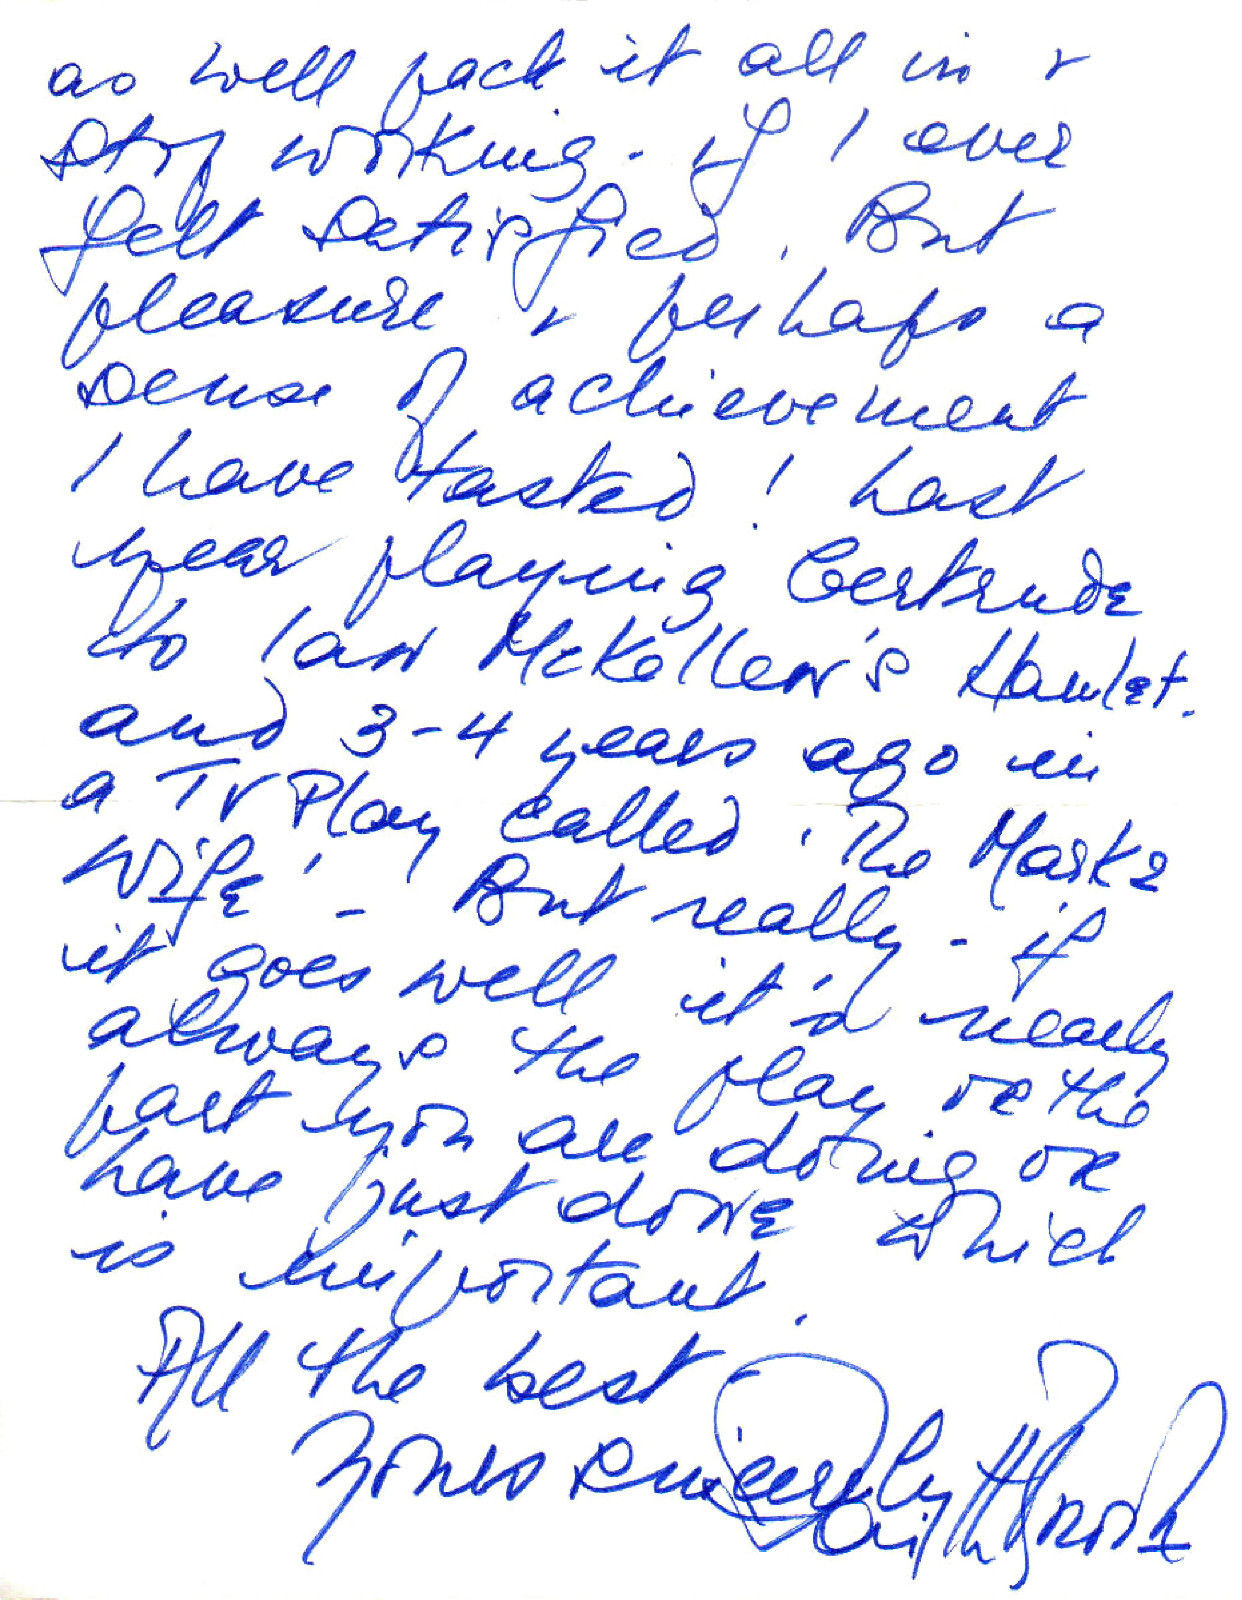 as well pack it all in &
stop working - if I ever
felt satisfied. But
pleasure & perhaps a
sense of achievement
I have tasted! Last
year playing Gertrude
to Ian McKellen's Hamlet.
and 3-4 years ago in
a TV Play called 'The Marks
Wife' - But really - if
it goes well it's nearly
always the play or the
part you are doing or
have just done which
is important.
All the best
Yours sincerely
Faith Brook